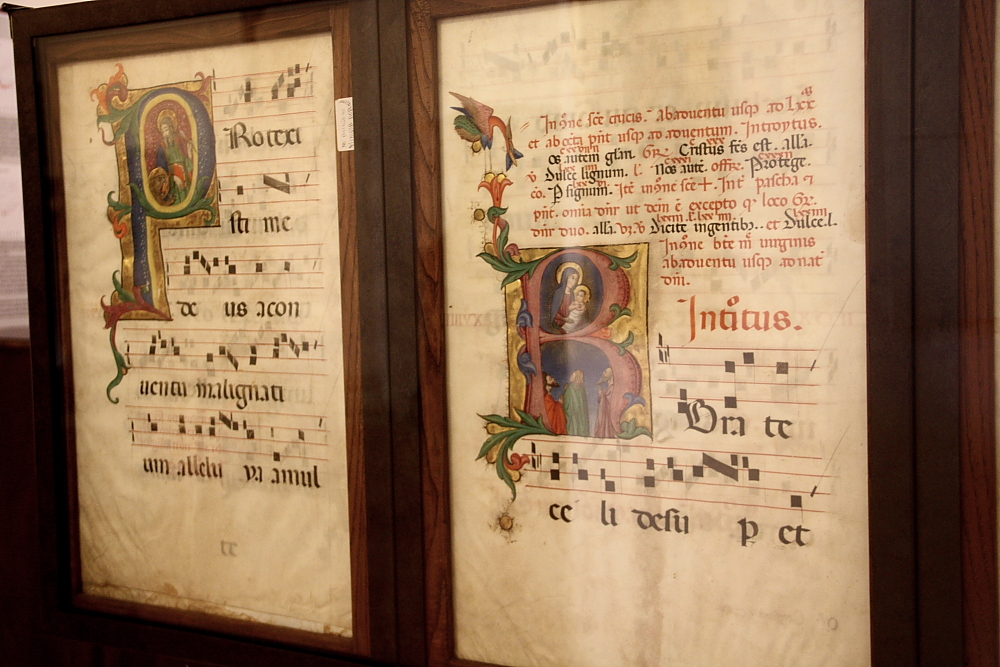 Protexi
sti me
de us a con
uentu malignati
um allelu ya a mul
te
In one sce crucis. Ab aduentu usq ad lxx
et ab octa pnt usq ad aduentum. Introytus.
os autem glari. Gr. Cristus fcs est. alla.
v Dulce lignum. l. Nos aute. offre. Protege.
co. P signum. Ite in one sce +. Int pascha
pnt. omia dnr ut dem e excepto q loco Gr.
dnr duo. alla. Dicite in gentibz. et Dulce l.
In one bte m uirginis
ab aduentu usq ad nat
dni.
Introitus.
Rora te
ce li desu p et